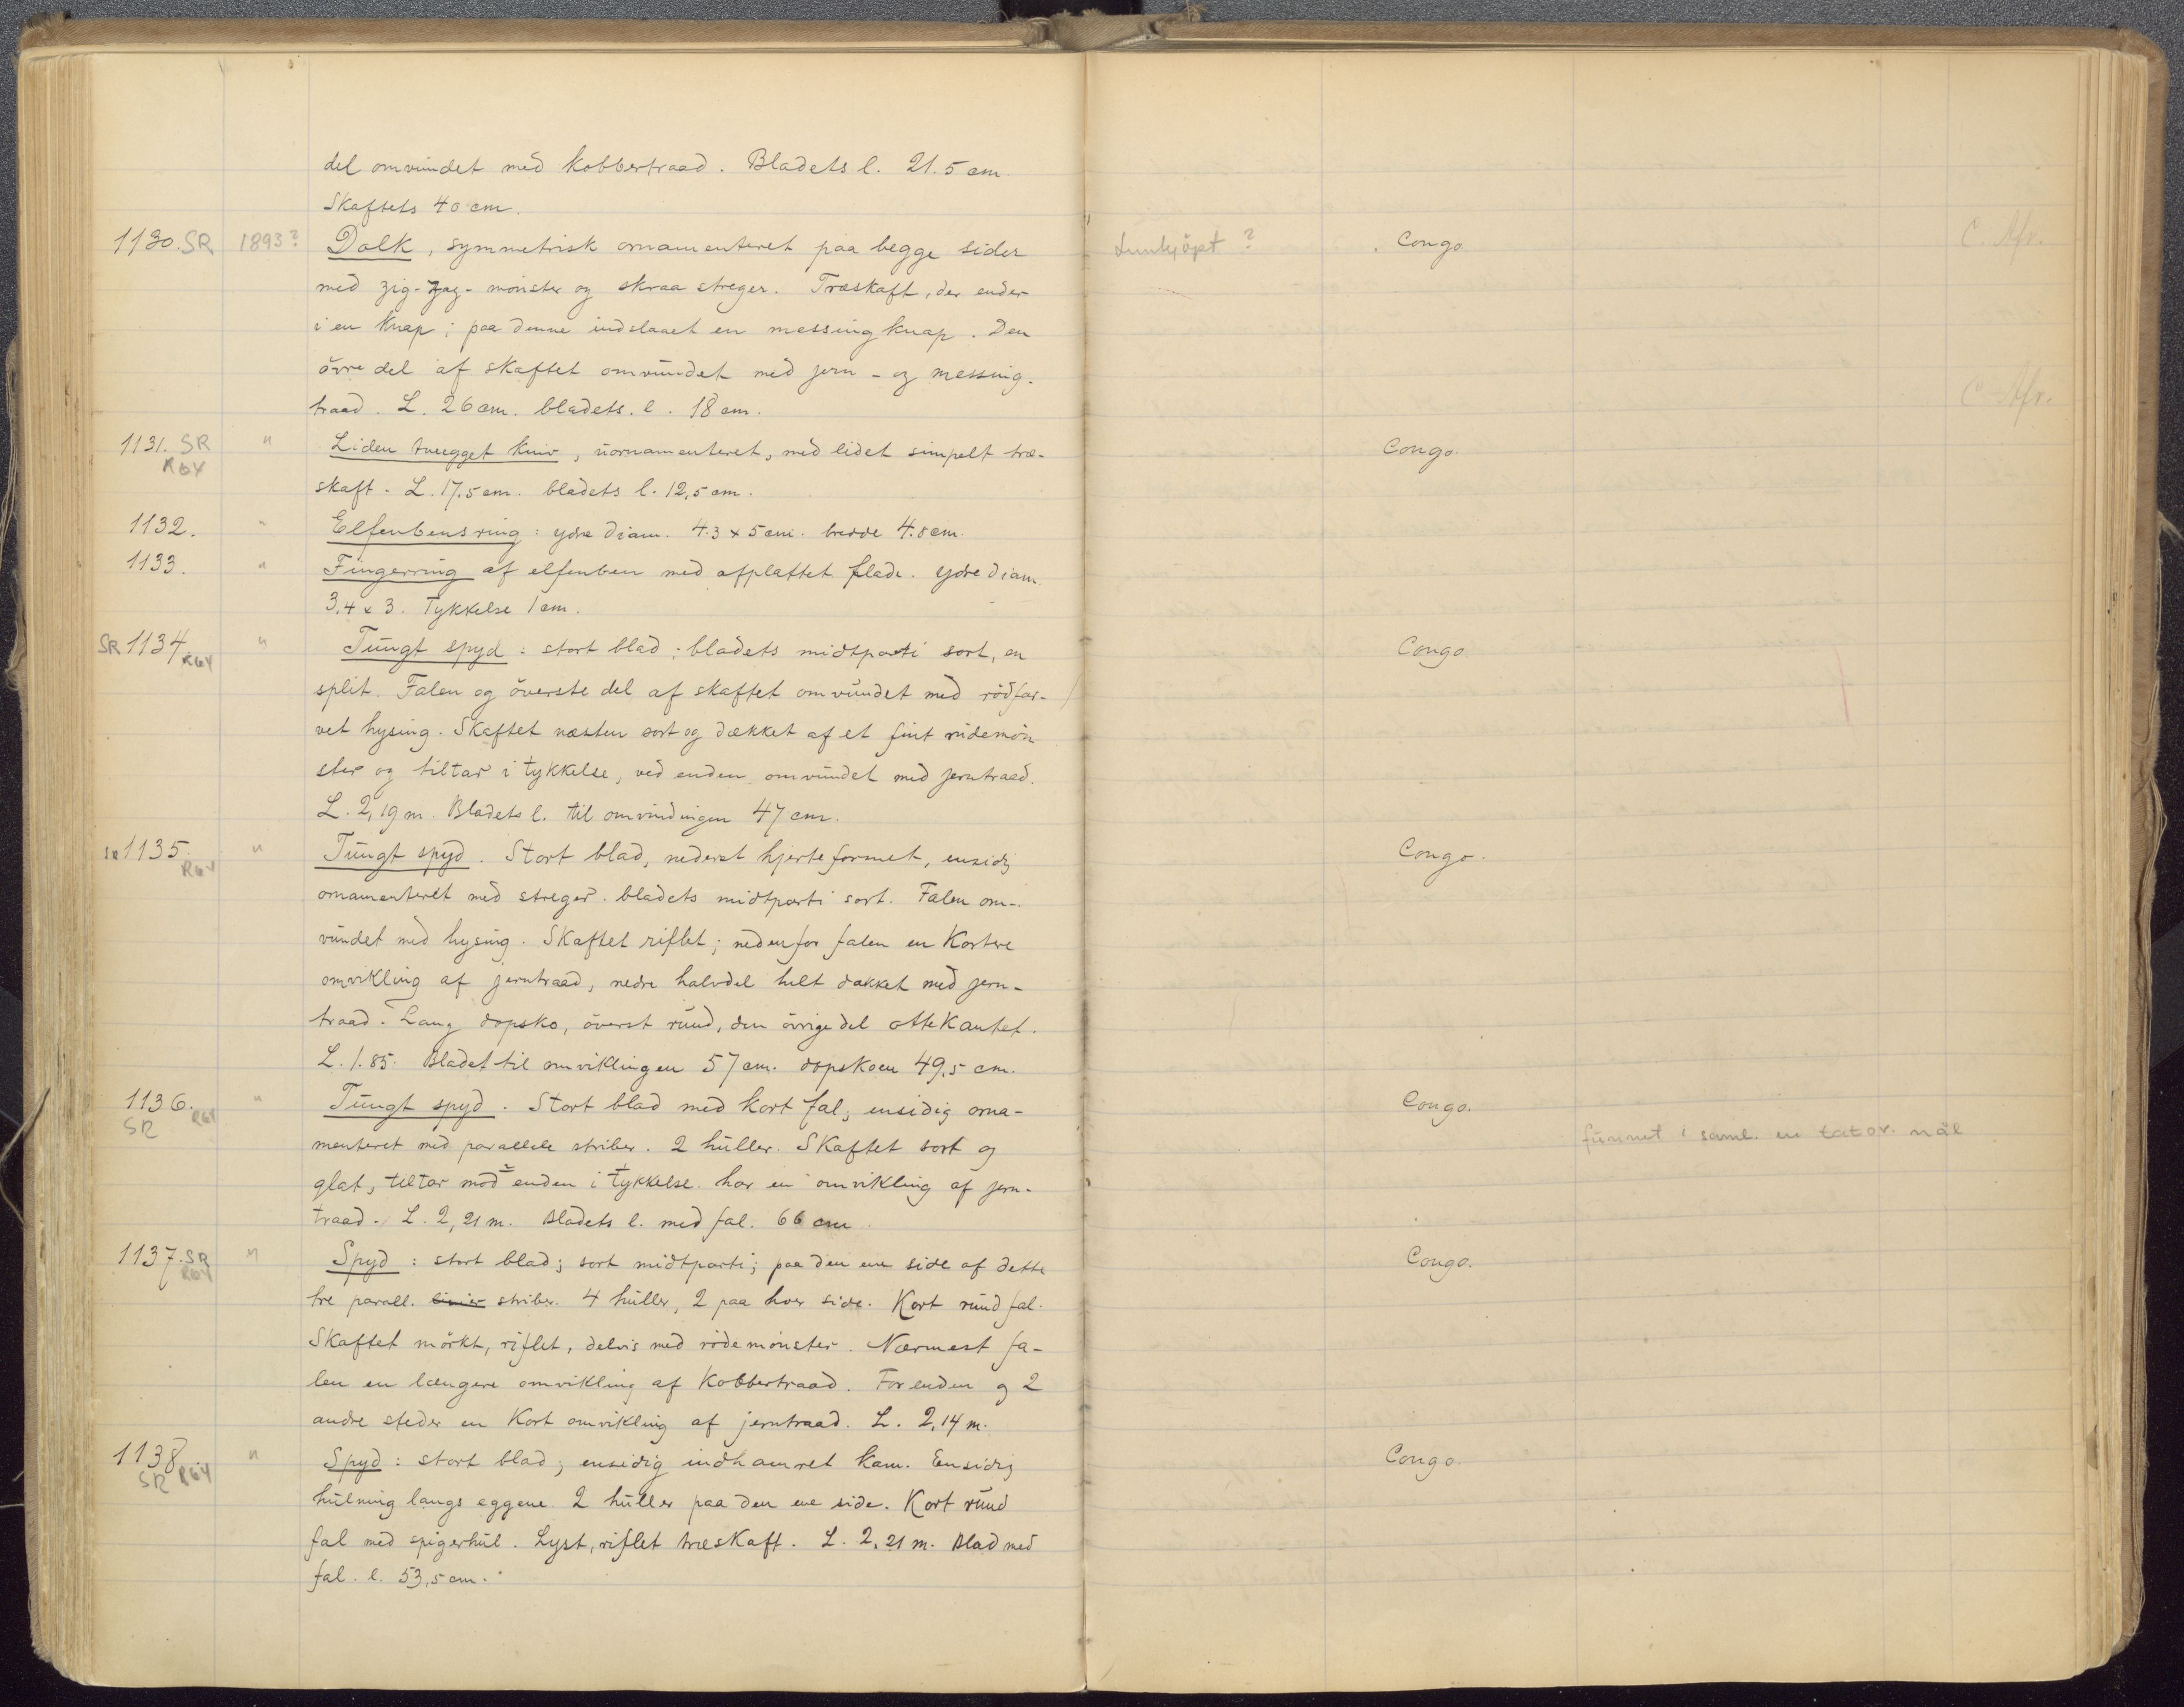 del omvundet med kobbertraad. Bladets l. 21.5 cm.
Skaftets 40 cm.
1130. SR 1893? Dolk, symmetrisk ornamenteret paa begge sider Innkjöpt? Congo C. Afr.
med zig-zag-mønster og skraa streger. Træskaft, der ender
i en knap; paa denne indslaaet en messingknap. Den
övre del af skaftet omvundet med jern- og messing- C. Afr.
traad. L. 26 cm. bladets. l. 18 cm.
1131. SR " Liden tveegget kniv, uornamenteret, med lidet simpelt træ- Congo.
R64
skaft. L. 17,5 cm. bladets l. 12,5 cm.
1132. " Elfenbensring: ydre diam. 4.3 x 5 cm. bredde 4.8 cm.
1133. " Fingerring af elfenben med afplattet flade. ydre diam.
3,4 x 3. Tykkelse 1 cm.
SR 1134. R64 " Tungt spyd: stort blad; bladets midtparti sort, en Congo.
split. Falen og överste del af skaftet omvundet med rödfar-
vet hysing. Skaftet næsten sort og dækket af et fint rudemön
ster og tiltar i tykkelse, ved enden omvundet med jerntraad.
L. 2,19 m. Bladets l. til omvindingen 47 cm.
SR 1135. R64 " Tungt spyd. Stort blad, nederst hjerteformet, ensidig Congo.
ornamenteret med streger. bladets midtparti sort. Falen om-
vundet med hysing. Skaftet riflet; nedenfor falen en kortere
omvikling af jerntraad, nedre halvdel helt dækket med jern-
traad. Lang dopsko, överst rund, den övrige del ottekantet.
L. 1.85. Bladet til omviklingen 57 cm. dopskoen 49,5 cm.
1136. SR R64 " Tungt spyd. Stort blad med kort fal, ensidig orna- Congo.
menteret med parallele striber. 2 huller. Skaftet sort og funnet i saml. en tatov. nål
glat, tiltar mod enden i tykkelse. har en omvikling af jern-
traad. L. 2,21 m. Bladets l. med fal. 66 cm.
1137. SR R64 " Spyd: stort blad; sort midtparti; paa den ene side af dette Congo.
tre parall. linier striber. 4 huller, 2 paa hver side. Kort rund fal.
Skaftet mörkt, riflet, delvis med rudemönster. Nærmest fa-
len en længere omvikling af kobbertraad. For enden og 2
andre steder en kort omvikling af jerntraad. L. 2,14 m.
1138. SR R64 " Spyd: stort blad, ensidig indhamret kam. Ensidig Congo.
hulning langs eggene. 2 huller paa den ene side. Kort rund
fal med spigerhul. Lyst, riflet træskaft. L. 2,21 m. Blad med
fal. l. 53,5 cm.